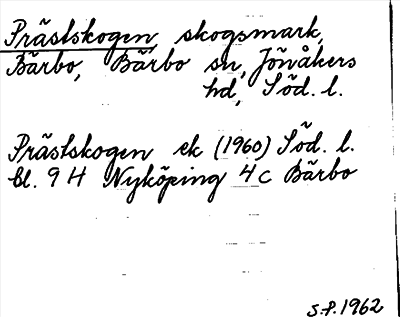 Prästskogen skogsmark,
Bärbo, Bärbo sn, Jönåkers
hd, Söd. l.
Prästskogen ek (1960) Söd. l.
bl. 9 H Nyköping 4 c Bärbo
S.P. 1962